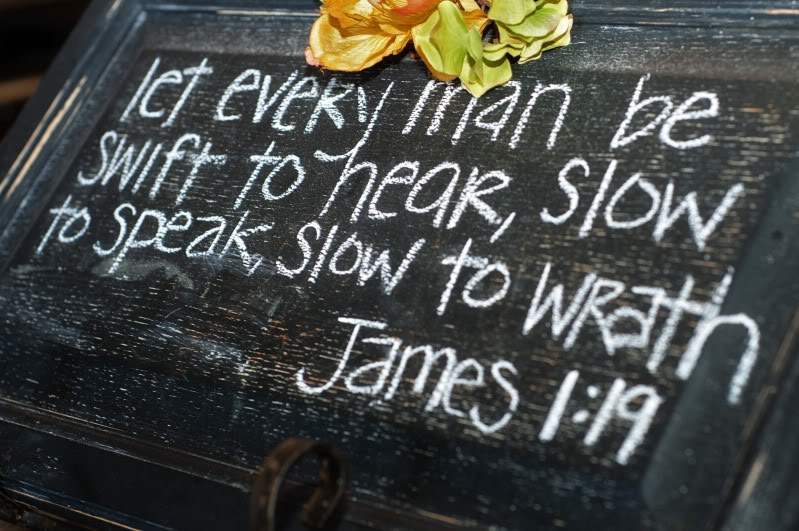 let every man be
swift to hear, slow
to speak, slow to wrath
James 1:19